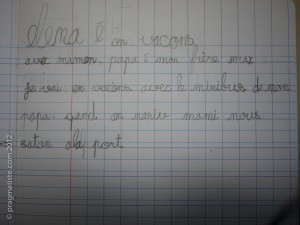 dena é on vacons
avec maman. papa é mon frère max
je vai en vacons avec le minibus de mon
papa. quend on narive mami nous
zatan alaport.
© pragmatiste.com 2012